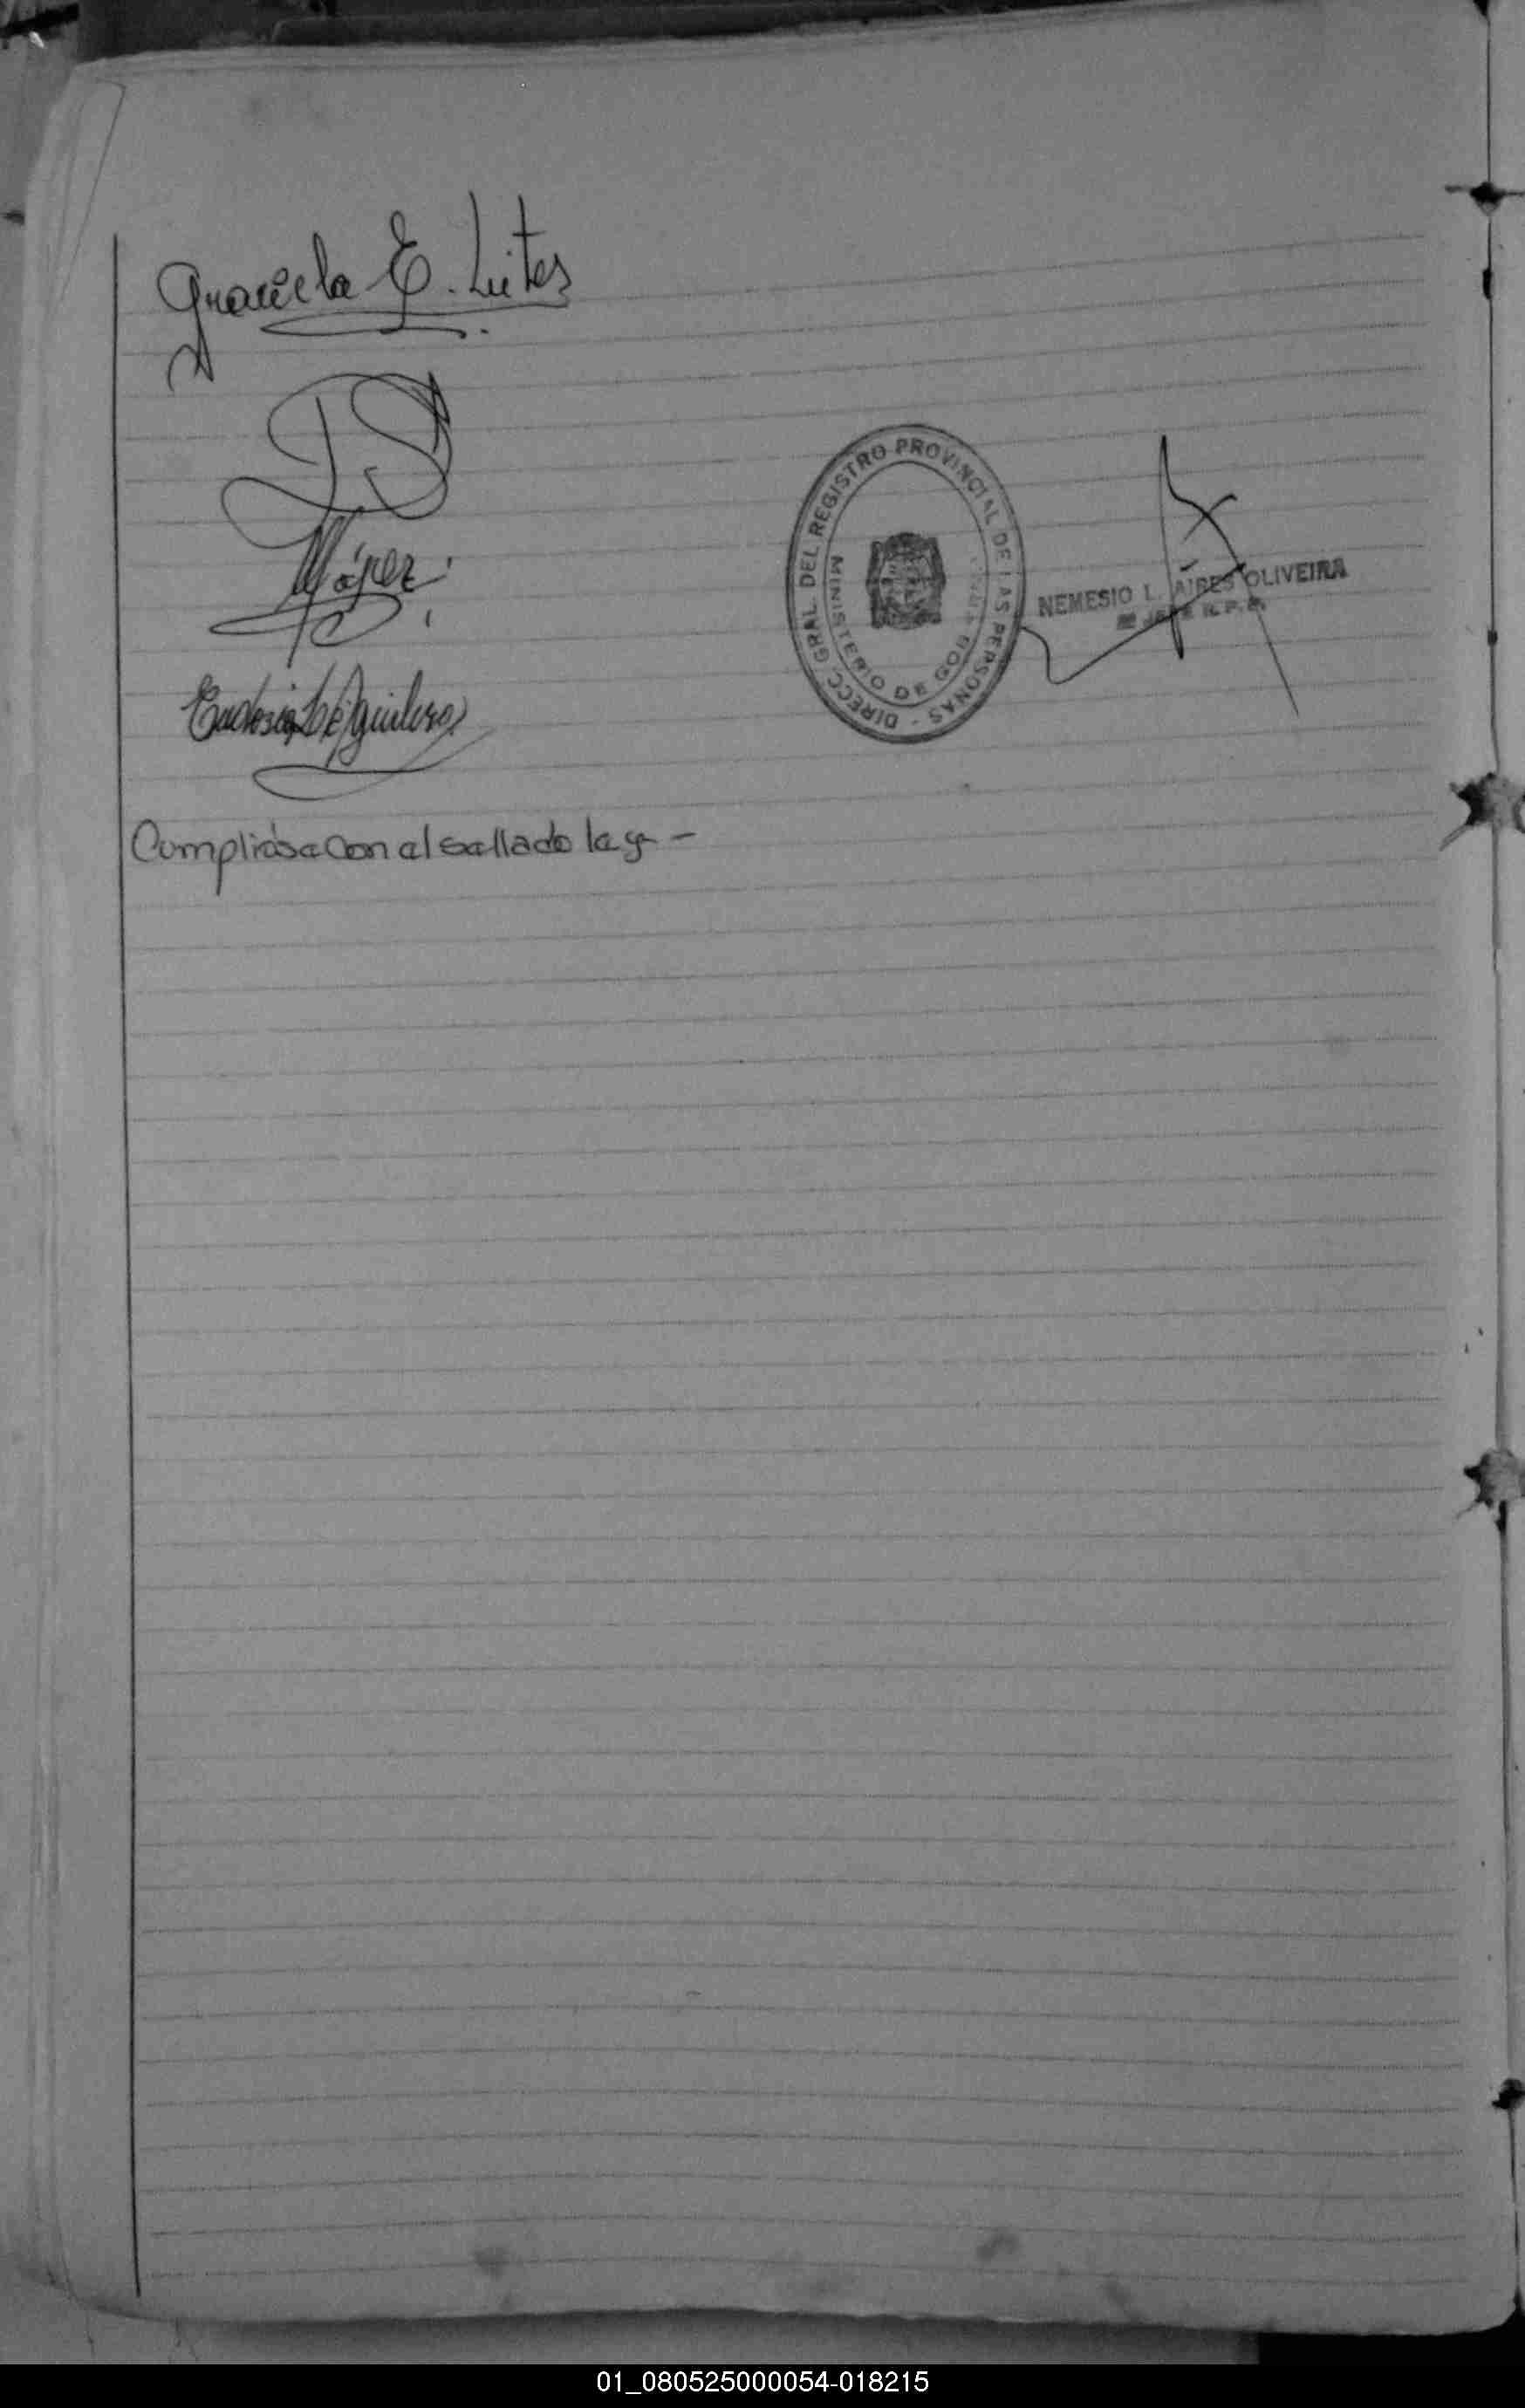 Graciela E. Leites
López
Eudosia L de Aguilera
DIRECC. GRAL. DEL REGISTRO PROVINCIAL DE LAS PERSONAS -
MINISTERIO DE GOB
NEMESIO L. AIRES OLIVEIRA
JEFE R. P. P.
Cumplióse con el sellado ley -
01_080525000054-018215